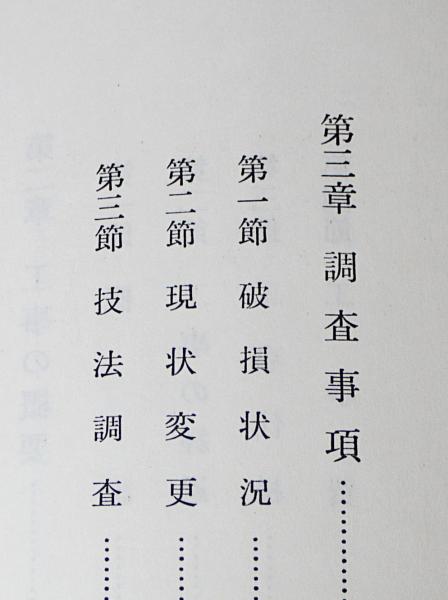 第三章 調査事項…………
第一節 破損状況……
第二節 現状変更……
第三節 技法調査……